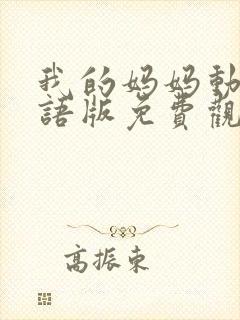 我的妈妈動
語版免費觀
高振東